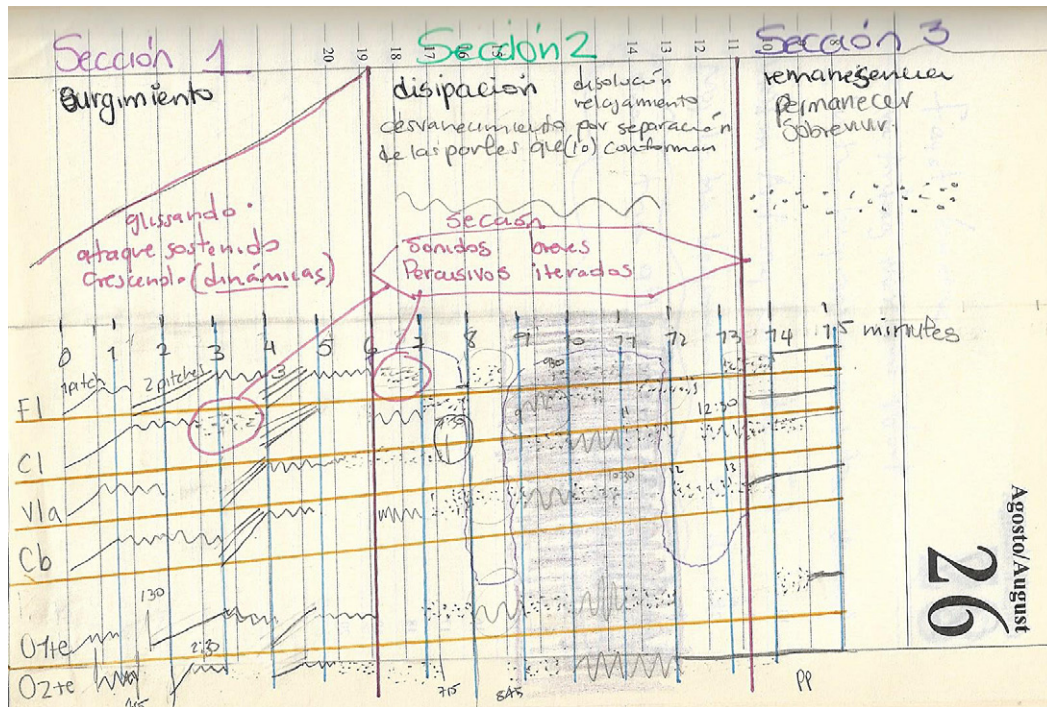 Sección 1
Sección 2
Sección 3
20 19 18 17 16 15 14 13 12 11 10
surgimiento
disipación
disolución
relajamiento
desvanecimiento por separación
de las partes que (lo) conforman
remanesencia
permanecer
sobrevivir
glissando
ataque sostenido
crescendo (dinámicas)
sección
Sonidos breves
Percusivos iterados
0 1 2 3 4 5 6 7 8 9 10 11 12 13 14 15 minutes
1 pitch
2 pitches
3
Fl
Cl
12:30
Vla
12
13
Cb
130
O1te
2:30
O2te
715
845
pp
Agosto/August
26